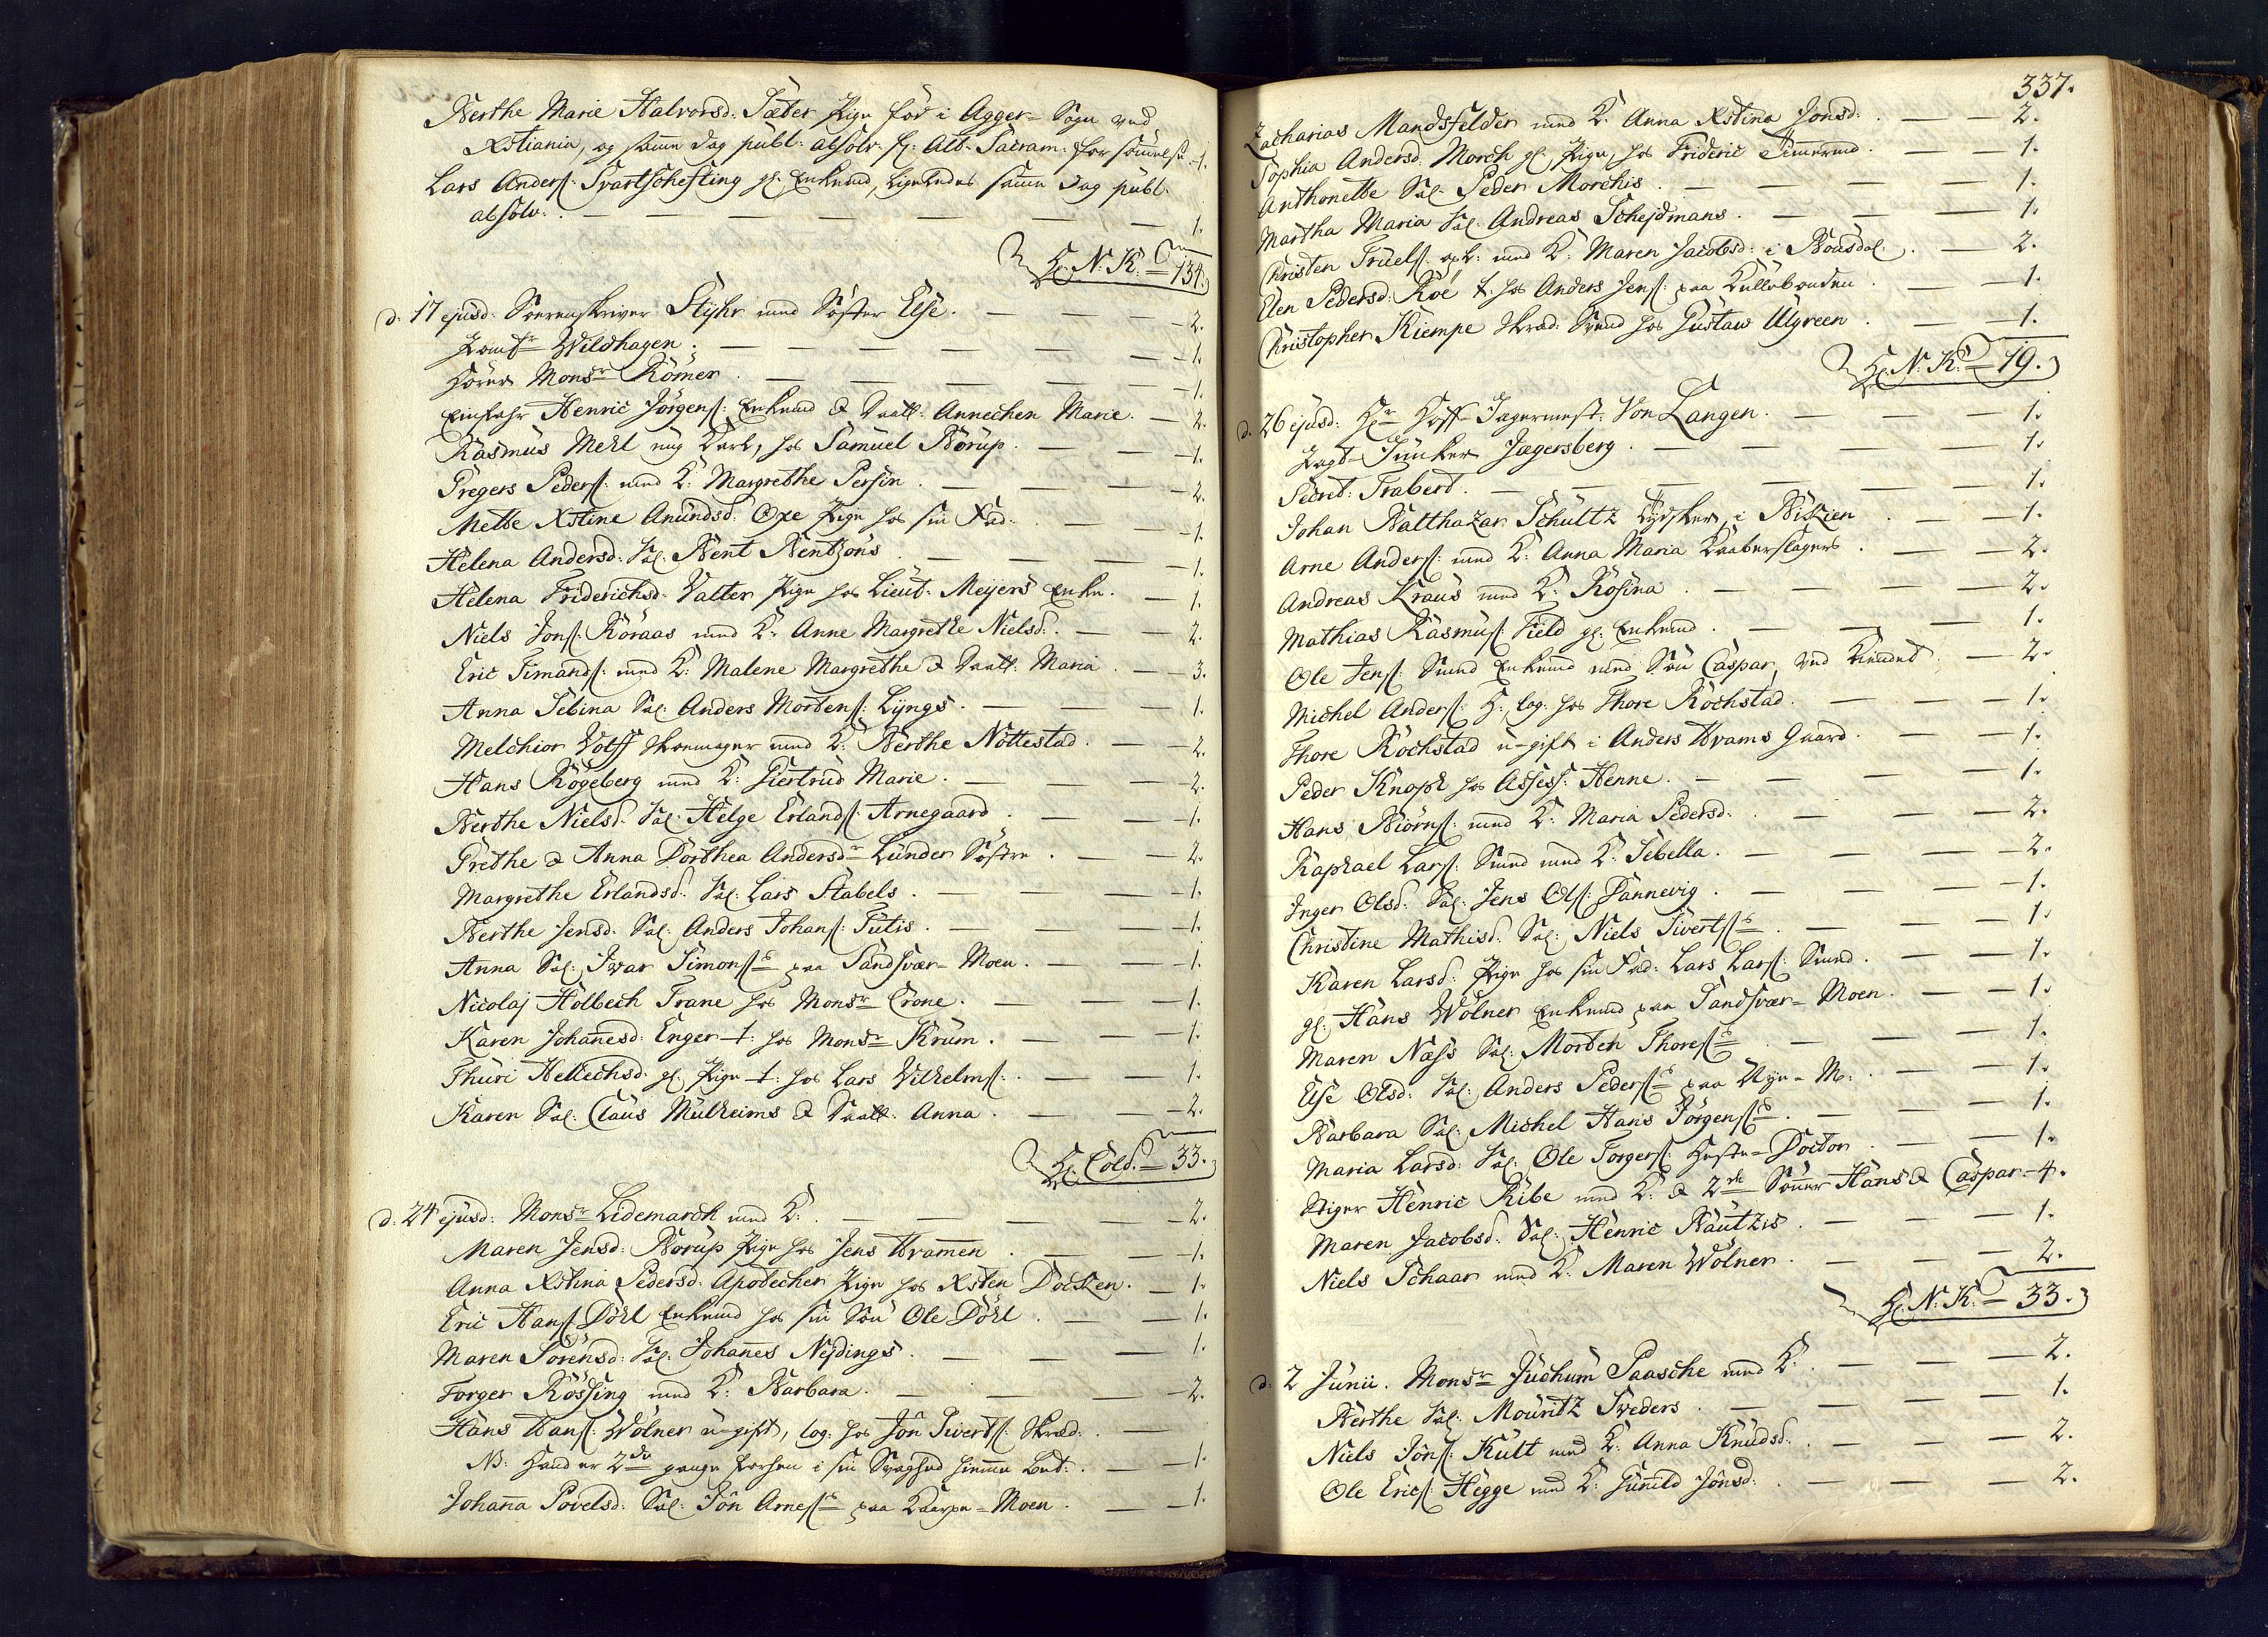 Berthe Marie Halvorsd: Sæter Pige fød i Agger-Sogn ved
Xstiania, og samme dag publ: absolv. f: Alt. Sacram: forsømmelse - 1.
Lars Anders: Svartschefting gl: Enkemd, ligeledes samme dag publ.
absolv: . — 1.
H: N: K: = 134.
d. 17 ejusd: Sorenskriver Stijhr med Søster Else. — 2.
Jomfr Wildhagen. — 1.
Hører Monsr Römer. — 1.
Henric Jörgens: Enkemd & Daatt: Annechen Marie. — 2.
Rasmus Mehl ung Karl, hos Samuel Borup. — 1.
Gregers Peders: med K: Margrethe Persin. — 2.
Mette Xstine Anundsd: Oxe Pige hos sin Fad: — 1.
Helena Andersd: Sal: Bent Bentzons. — 1.
Helena Friderichsd: Valter Pige hos Lieut: Meyers Enke. — 1.
Niels Jons: Röraas med K: Anne Margrethe Nielsd: — 2.
Eric Simands: med K: Malene Margrethe & Daatt: Maria. — 3.
Anna Sebina Sal: Anders Mortens: Lyngs. — 1.
Melchior Wolff Skoemager med K: Berthe Nottestad. — 2.
Hans Rögeberg med K: Giertrud Marie. — 2.
Berthe Nielsd: Sal: Helge Erlands: Arnegaard. — 1.
Grethe & Anna Dorthea Andersdr Lunder Søstre. — 2.
Margrethe Erlandsd: Sal: Lars Stabels. — 1.
Berthe Jensd: Sal: Anders Johans: Futis. — 1.
Anna Sal: Iwar Simons: paa Sandsvær-Moen. — 1.
Nicolaj Holbech Trane hos Monsr Crone. — 1.
Karen Johanesd: Enger t: hos Monsr Krum. — 1.
Thuri Hellechsd: gl: Pige t: hos Lars Vilhelms: — 1.
Karen Sal: Claus Mulheims & Daatt: Anna. — 2.
H: Cold: = 33.
d. 24 ejusd: Monsr Lidemarch med K: — 2.
Maren Jensd: Borup Pige hos Jens Bramen. — 1.
Anna Xstina Pedersd: Apotecher Pige hos Xsten Docken. — 1.
Eric Hans: Döhl Enkemd hos sin Søn Ole Döhl. — 1.
Maren Sörensd: Sal: Johanes Nejdings. — 1.
Torger Rössing med K: Barbara. — 2.
Hans Hans: Wölner u-gift, log: hos Jön Siverts: Skræd: —
NB: Hand er 2de gange forhen i sin Svaghed hiemme bet: — 1.
Johana Povelsd: Sal: Jön Arnes: paa Moen. — 1.
337.
Zacharias Mandsfelder med K: Anna Xstina Jonsd: — 2.
Sophia Andersd: Morch gl: Pige, hos Frideric Timermd. — 1.
Anthonette Sal: Peder Morchis. — 1.
Martha Maria Sal: Andreas Schejdmans. — 1.
Christen Truels: med K: Maren Jacobsd: i — 2.
Elen Pedersd: Roe t: hos Anders Jens: paa — 1.
Christopher Kiempe Skræd: Svend hos Gustaw Ulgreen. — 1.
H: N: K: = 19.
d. 26 ejusd: Hr Hoff-Jægermest: Von Langen. — 1.
Jagt-Junker Jægersberg. — 1.
Secret: Trabert. — 1.
Johan Balthazar Schultz Tydsker, i — 1.
Arne Anders: med K: Anna Maria Kaaberslagers. — 2.
Andreas Kraus med K: Rosina. — 2.
Mathias Rasmus: Field gl: Enkemd. — 1.
Ole Jens: Smed Enkemd med Søn Caspar, ved — 2.
Michel Anders: H: log: hos Thore Rochstad. — 1.
Thore Rochstad u-gift i Anders Brams Gaard. — 1.
Peder Knoph hos Assess: Henne. — 1.
Hans Biörns: med K: Maria Pedersd: — 2.
Raphael Lars: Smed med K: Sebella. — 2.
Inger Olsd: Sal: Jens Ols: Dannevig. — 1.
Christine Mathisd: Sal: Niels Siverts: — 1.
Karen Larsd: Pige hos sin Fad: Lars Lars: Smed. — 1.
gl: Hans Wölner Enkemd paa Sandsvær-Moen. — 1.
Maren Næss Sal: Morten Thores: — 1.
Else Olsd: Sal: Anders Peders: paa Nye-M: — 1.
Barbara Sal: Michel Hans Jörgens: — 1.
Maria Larsd: Sal: Ole Torgers: Heste-Doctor. — 1.
Stiger Henric Ribe med K: & 2de Sönner Hans & Caspar — 4.
Maren Jacobsd: Sal: Henric Bautzis. — 1.
Niels Schaar med K: Maren Wölner. — 2.
H: N: K: = 33.
d. 2 Junii. Monsr Juchum Paasche med K: — 2.
Berthe Sal: Mouritz Sweders. — 1.
Niels Jöns: Kult med K: Anna Knudsd: — 2.
Ole Erics: Hegge med K: Gunild Jönsd: — 2.